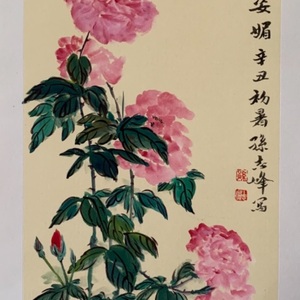 姿媚辛丑初暑孫志峰写